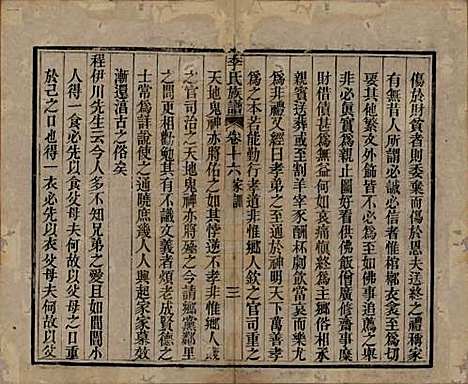 傷於財貧者則委棄而傷於恩夫送終之體稱家
有無昔人所謂必誠必信者惟棺槨衣衾至為
要其他繁文外飾皆不必爾且如佛事追薦之與
非必眞實為親止圖好看供佛飯僧廣修齋事糜
財借債甚為無益何如哀痛愼終為美至於姻
賓送葬或至割牲宰豕酬杯劇飲當哀而樂尤
為非禮又經曰孝弟之至通於神明天下萬善孝
為之本若能勤行孝道非惟鄉人欽之官司重之
李氏族譜 卷十六 家訓 三
天地鬼神亦將佑之如其悖逆不孝非惟鄉人賤
之官司治之天地鬼神亦將殛之吾鄉黨鄰里
之間更相勸勉其有不識文義者煩老成賢德之
士當為詳說使之通曉庶幾人人興起家家慕效
漸還淳古之俗矣
程伊川先生云今人多不知兄弟之愛且如閭閻小
人得一食必先以食父母夫何故以父母之口重
於己之口也得一衣必先以衣父母夫何故以父母